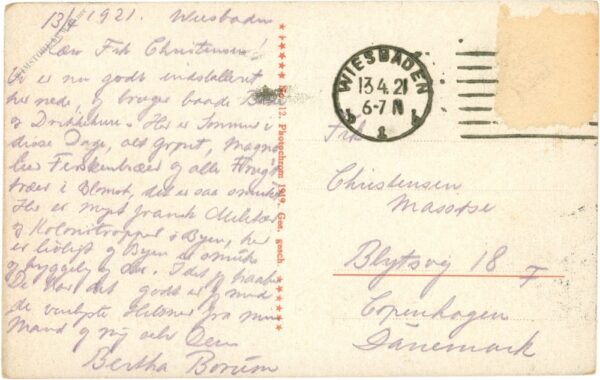 13/4 1921. Wiesbaden
Kære Frk Christensen!
Vi er nu godt indstalleret
her nede, og bruger baade Bade
og Drikkekure. Her er Sommer i
disse Dage, alt grønt, Magno-
lier Ferskentræer og alle Frugt
træer i Blomst, det er saa smukt
Her er mest fransk Militær
og Kolonitropper i Byen, her
er livligt og Byen er smuk
og hyggelig
De har det godt
de venligste Hilsner fra min
Mand og mig selv Deres
Bertha Borum
No. 12. Photochrom 1919. Ges. gesch.
WIESBADEN
13.4.21
6-7 N
Frk
Christensen
Massøse
Blytsvej 18
F
Copenhagen
Dänemark